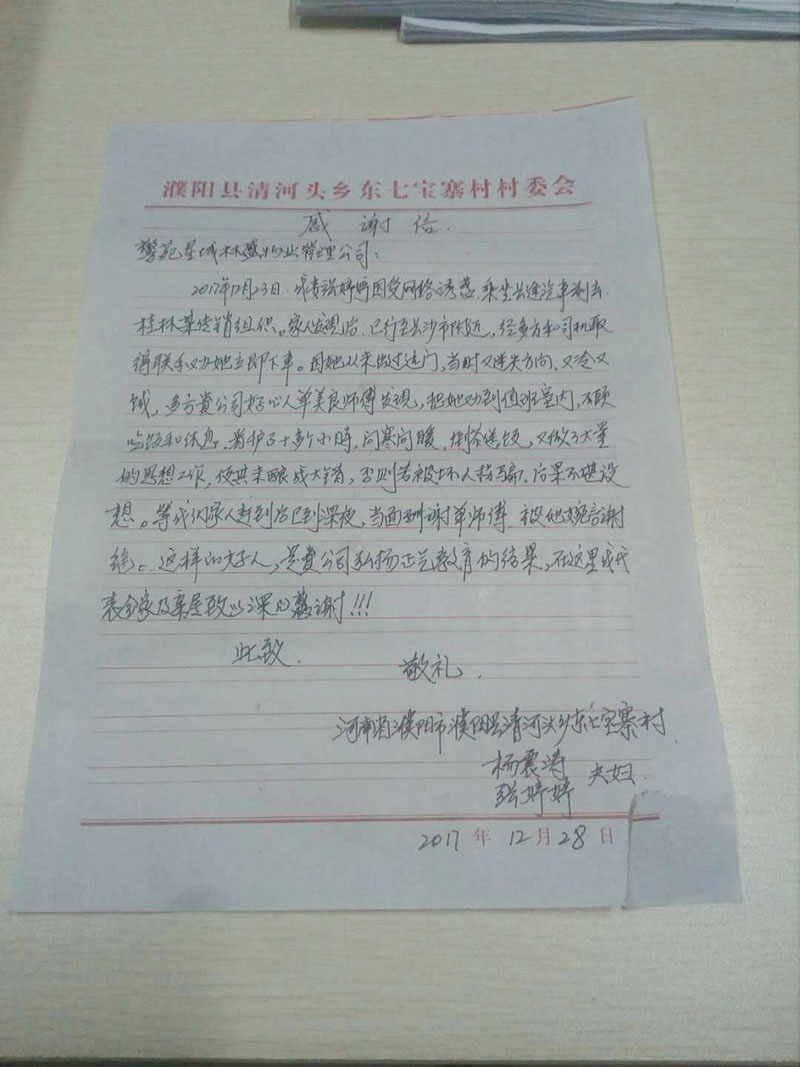 濮阳县清河头乡东七宝寨村村委会
感谢信.
馨苑星城林盛物业管理公司:
2017年12月23日.我妻张婷婷因受网络诱惑,乘坐长途汽车前去
桂林某传销组织。家人发现后,已行至长沙市附近,经多方和司机取
得联系又劝她立即下车。因她从未出过远门,当时又迷失方向,又冷又
饿,多方贵公司好心人单美良师傅发现,把她劝到值班室内,不顾
吃饭和休息,看护了十多个小时,问寒问暖,倒茶送饭,又做了大量
的思想工作,使其未酿成大错,否则若被坏人拐骗,后果不堪设
想。等我们家人赶到后已到深夜,当面酬谢单师傅 被他婉言谢
绝。这样的好人,是贵公司弘扬正气教育的结果,在这里我代
表全家及亲属致以深的感谢!!!
此致. 敬礼.
河南省濮阳市濮阳县清河头乡东七宝寨村.
杨震涛
张婷婷 夫妇.
2017年12月28日